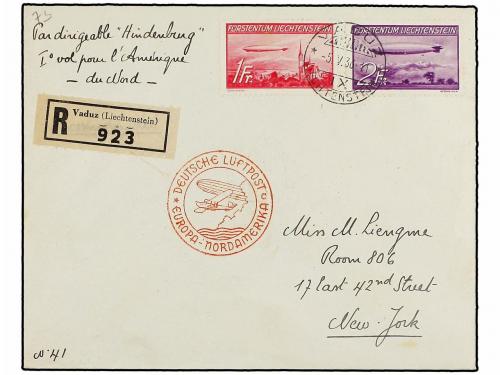 73
Par dirigeable "Hindenburg"
1º vol pour l'Amérique
— du Nord —
FÜRSTENTUM LIECHTENSTEIN
1 Fr.
FÜRSTENTUM LIECHTENSTEIN
2 Fr.
VADUZ
-5.V.36
LIECHTENSTEIN
R Vaduz (Liechtenstein)
923
DEUTSCHE LUFTPOST
EUROPA-NORDAMERIKA
Miss M. Liengme
Room 806
17 East 42nd Street
New-York
Nº 41